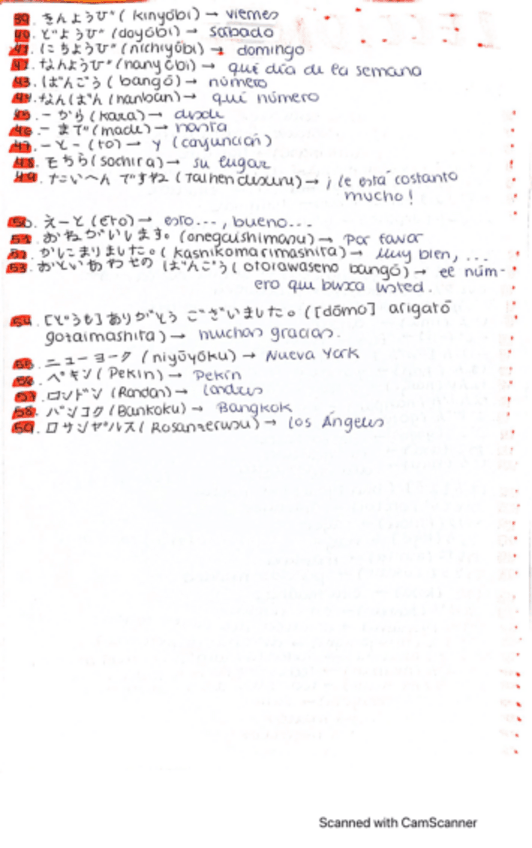 39. きんようび (kinyōbi) → viernes
40. どようび (doyōbi) → sábado
41. にちようび (nichiyōbi) → domingo
なんようび (nanyōbi) → qué día de la semana
43. ばんごう (bangō) → número
44. なんばん (nanban) → qué número
45. ーから (kara) → desde
46. ーまで (made) → hasta
47. ーとー (to) → y (conjunción)
48. そちら (sochira) → su lugar
49. たいへん ですね (taihen desune) → ¡le está costanto
mucho!
50. えーと (ēto) → esto..., bueno...
51. おねがいします。(onegaishimasu) → Por favor
52. かしこまりました。(kashikomarimashita) → Muy bien, ...
53. おといあわせの ばんごう (otoiawaseno bangō) → el núm-
ero que busca usted.
54. [どうも] ありがとう ございました。([dōmo] arigatō
gozaimashita) → muchas gracias.
55. ニューヨーク (niyūyōku) → Nueva York
56. ペキン (Pekin) → Pekín
57. ロンドン (Rondon) → Londres
58. バンコク (Bankoku) → Bangkok
59. ロサンゼルス (Rosanzerusu) → Los Ángeles
Scanned with CamScanner